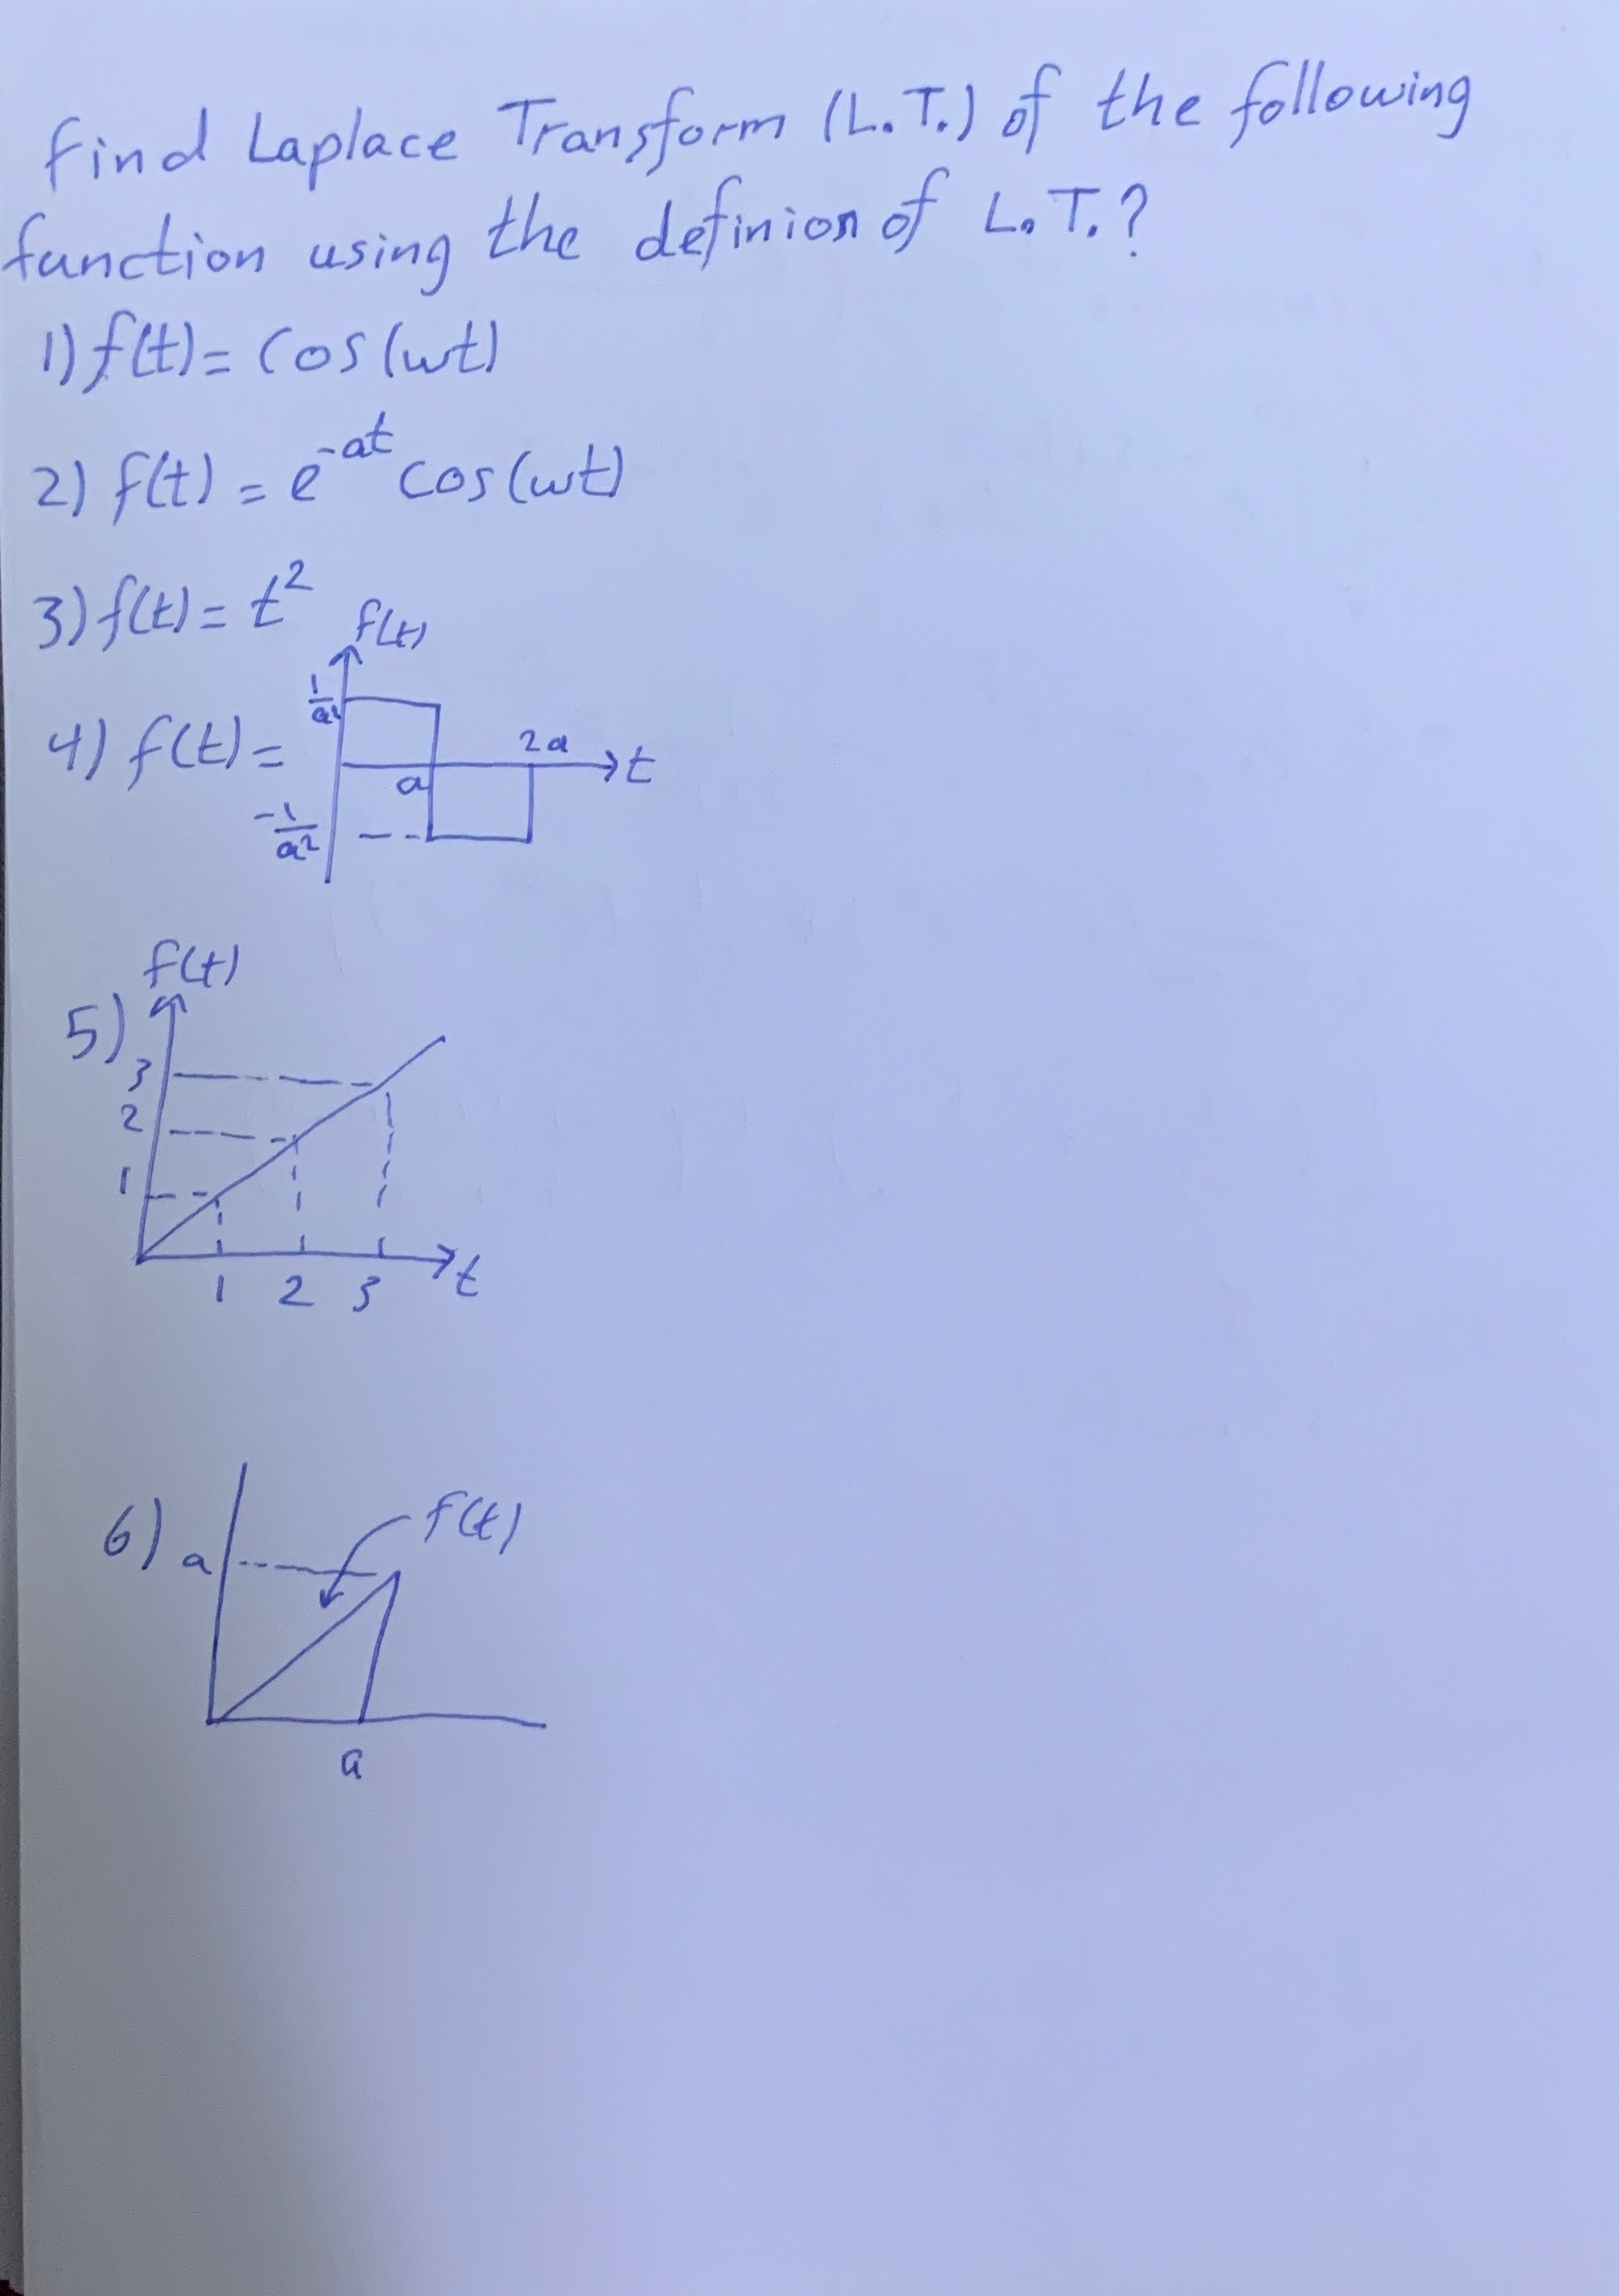 find Laplace Transform (L.T.) of the following
function using the definion of L.T.?
1) f(t) = cos(wt)
2) f(t) = e^-at cos(wt)
3) f(t) = t²
f(t)
1/a²
4) f(t) =
2a
t
a
-1/a²
f(t)
5)
3
2
1
1 2 3 t
6) a f(t)
a